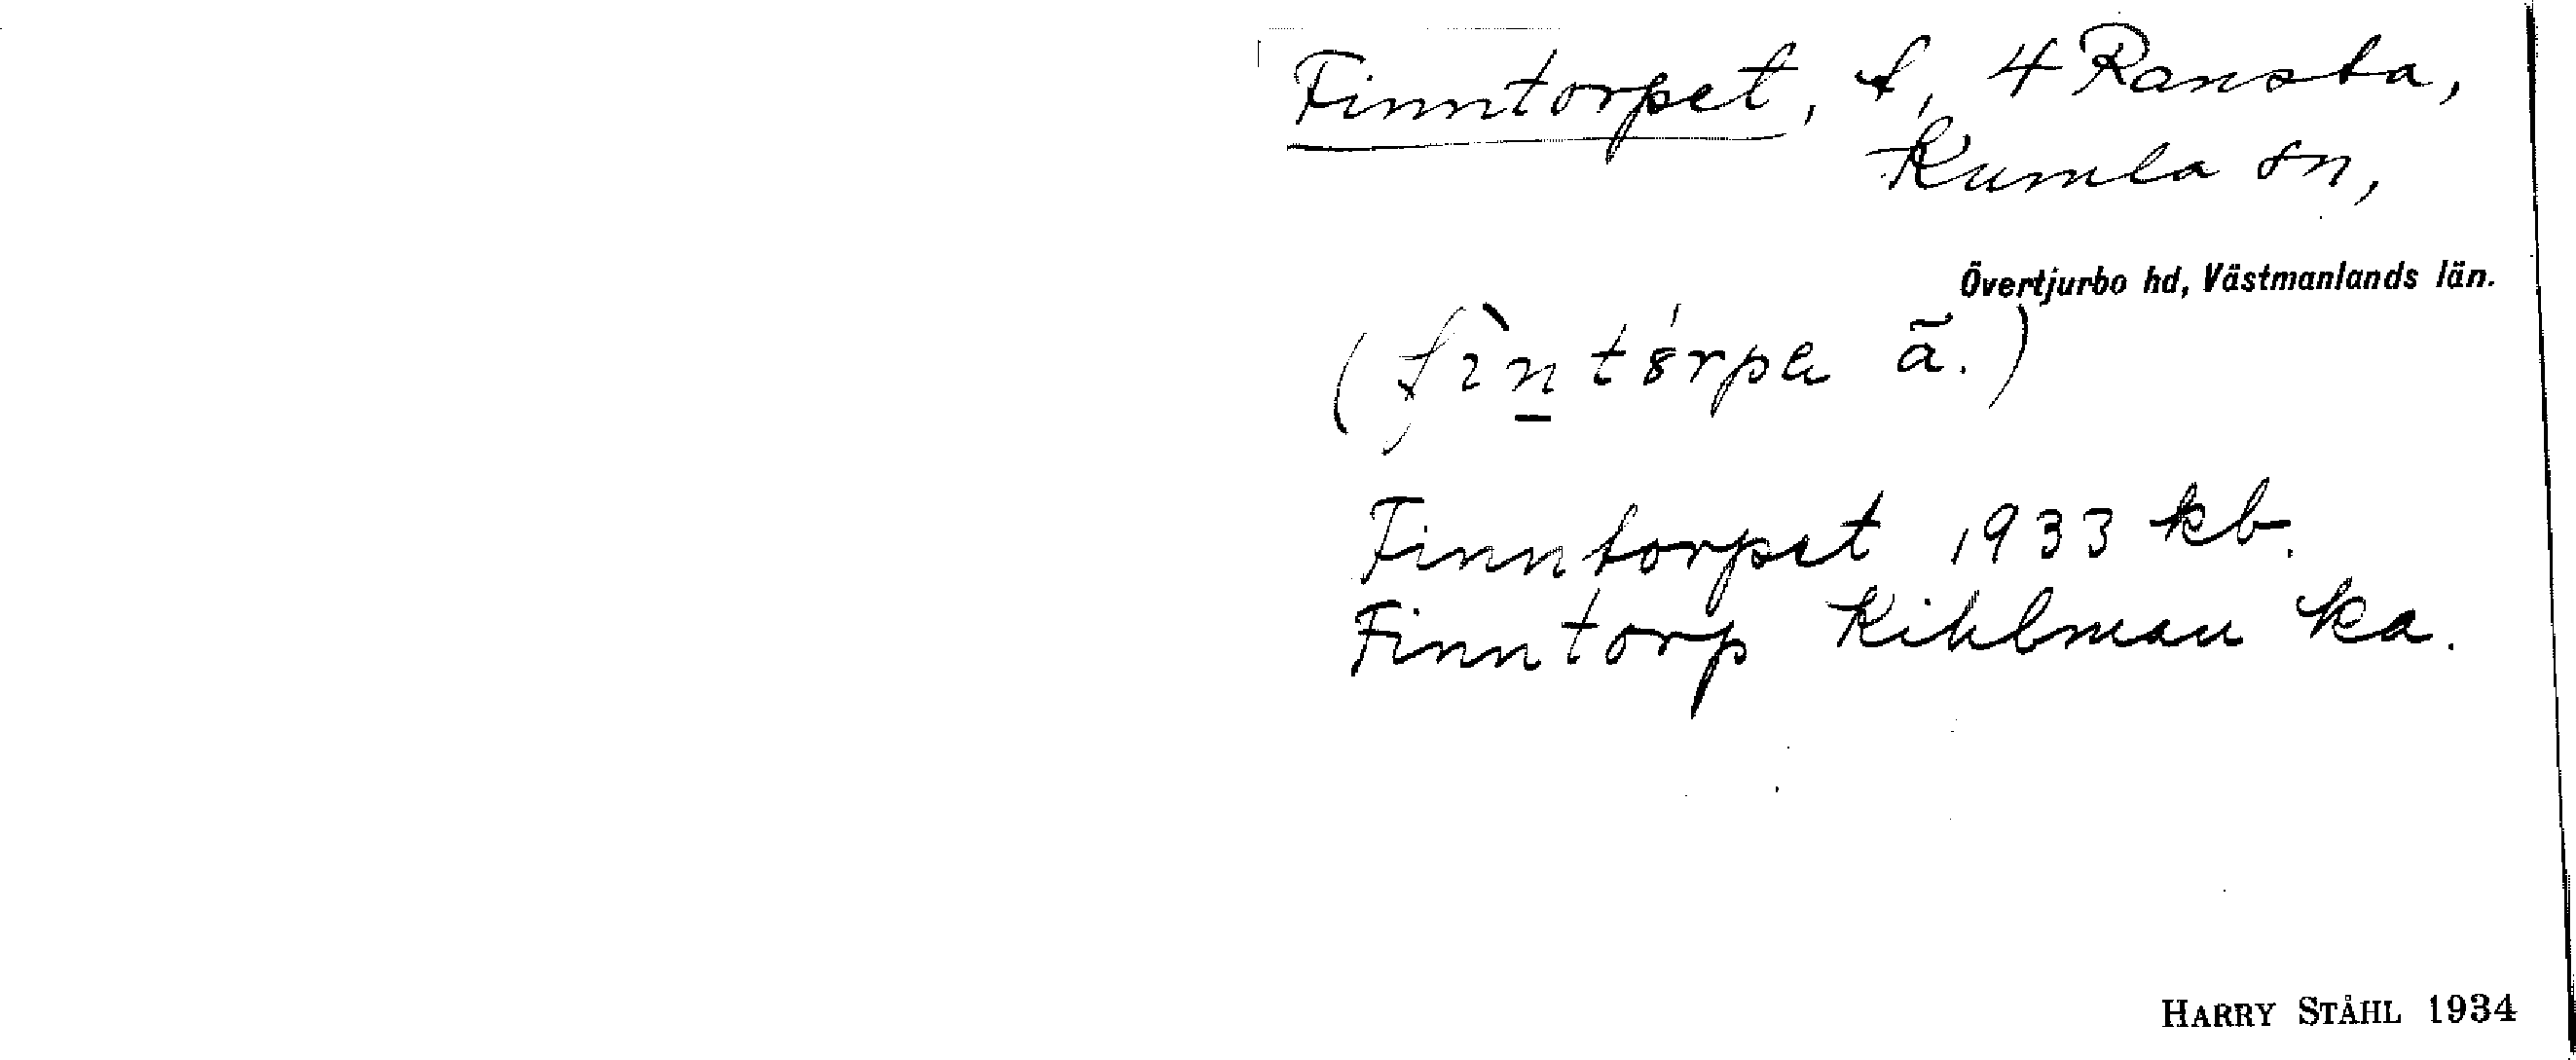 Finntorpet, t, 4 Ransta,
Kumla sn,
Övertjurbo hd, Västmanlands län.
(fìntórpa ã.)
Finntorpet 1933 kb.
Finntorp Kihlman ka.
HARRY STÅHL 1934